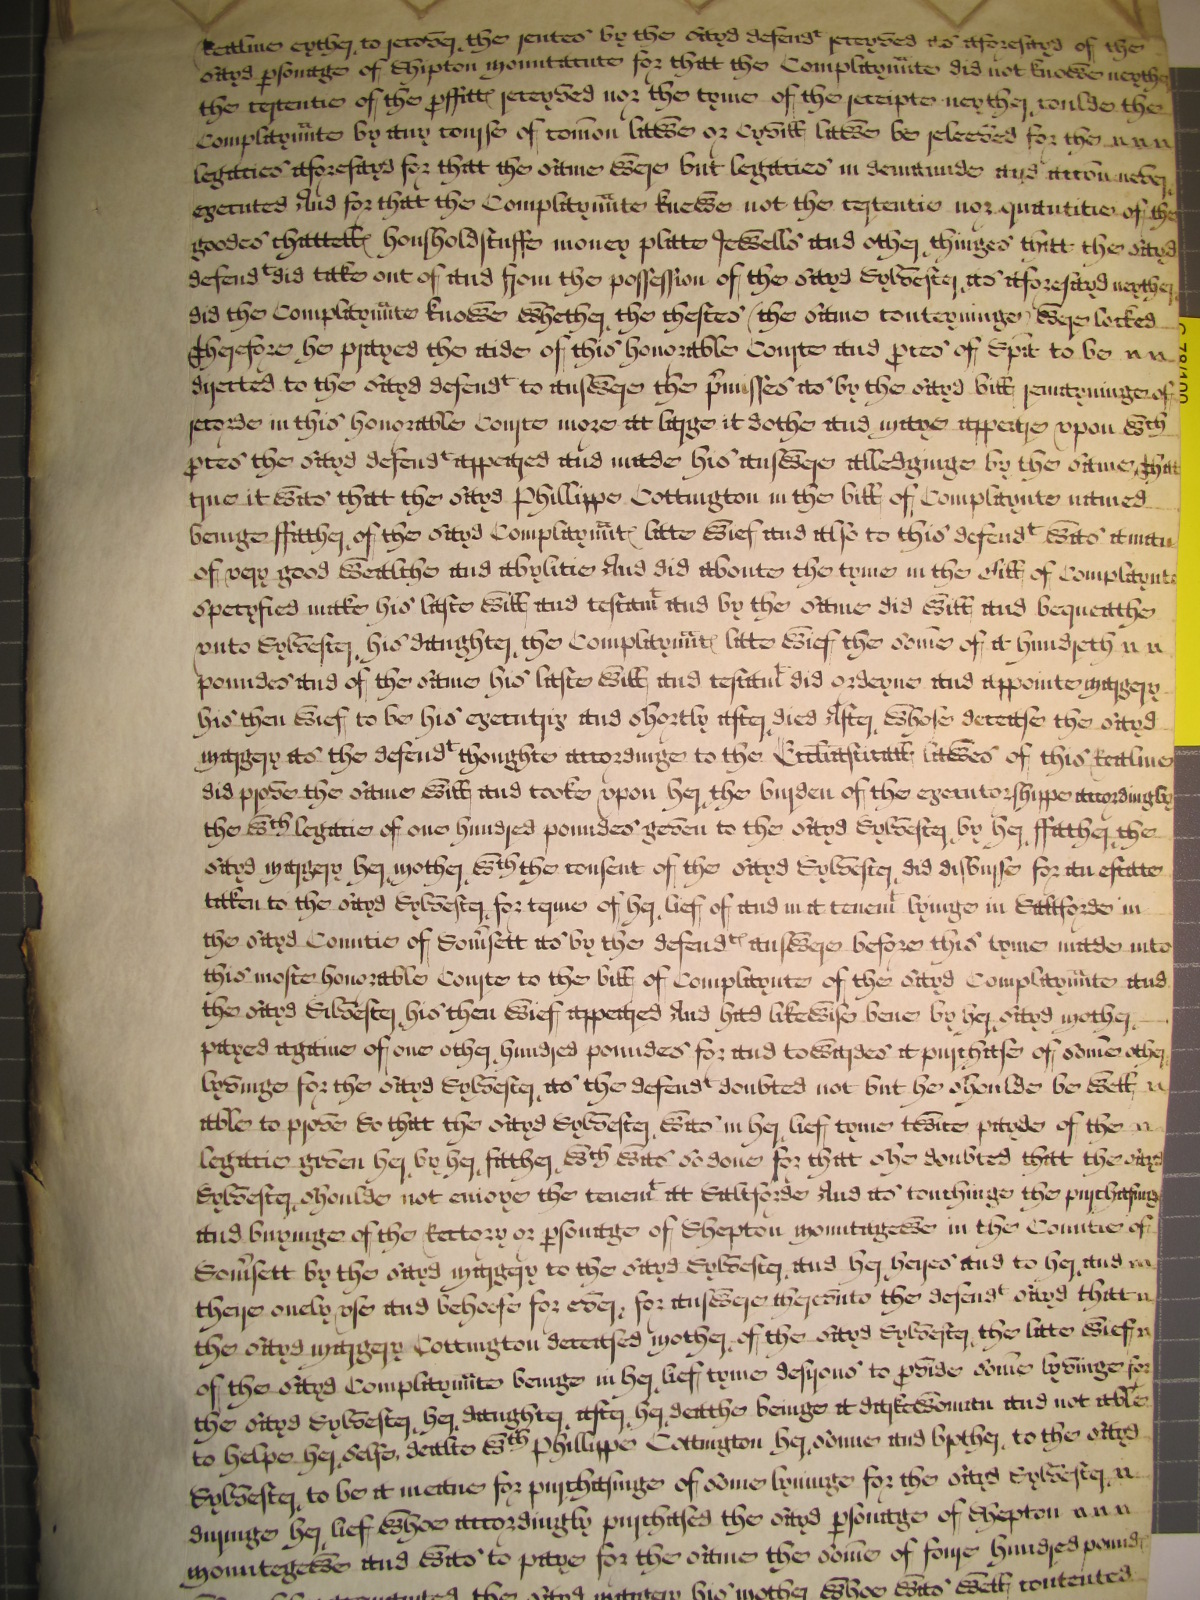 Realme eyther to recover the rentes by the sayd defendt receyved as aforesayd of the
sayd psonage of Shipton mountacute for that the Complaynnte did not knowe neyther
the certentie of the pffitte receyved nor the tyme of the receipte neyther coulde the
Complaynnte by any course of comon lawe or Cyvill lawe be releeved for the
legacies aforesayd for that the same were but legacies in demaunde and accon never
executed And for that the Complaynnte knewe not the certentie nor quantitie of the
goodes chattells housholdstuffe money plate Jewells and other thinges that the sayd
defendt did take out of and from the possession of the sayd Sylvester as aforesayd neyther
did the Complaynnte knowe whether the chestes (the same conteyninge) were locked
Therefore he prayed the aide of this honorable Courte and pces of Spa to be
directed to the sayd defendt to answere the pmisses as by the sayd bill remayninge of
recorde in this honorable Courte more at large it dothe and maye appeare vpon wth
pces the sayd defendt appeared and made his answere alledginge by the same That
true it was that the sayd Phillippe Cottington in the bill of Complaynte named
beinge ffather of the sayd Complaynnte late wief and also to this defendt was a man
of very good wealthe and abylitie And did aboute the tyme in the bill of Complaynte
specyfied make his laste will and testamt and by the same did will and bequeathe
vnto Sylvester his daughter the Complaynnte late wief the some of a hundreth
poundes and of the same his laste will and testamt did ordeyne and appointe margery
his then wief to be his executrix and shortly after died After whose decease the sayd
margery as the defendt thoughte accordinge to the Ecclıasticall lawes of this Realme
did prove the same will and tooke vpon her the burden of the executorshippe accordingly
the wth legacie of one hundred poundes geven to the sayd Sylvester by her ffather the
sayd margery her mother wth the consent of the sayd Sylvester did disburse for an estate
taken to the sayd Sylvester for terme of her lief of and in a tenemt lyinge in Saltforde in
the sayd Countie of Somsett as by the defendts answere before this tyme made into
this moste honorable Courte to the bill of Complaynte of the sayd Complaynnte and
the sayd Silvester his then wief appeared And had likewise bene by her sayd mother
payed agaime of one other hundred poundes for and towardes a purchase of some other
lyvinge for the sayd Sylvester as the defendt doubted not but he shoulde be well
able to prove So that the sayd Sylvester was in her lief tyme twice payde of the
legacie gyven her by her father wth was so done for that she doubted that the sayd
Sylvester shoulde not enioye the tenemt at Saltforde And as touchinge the purchasinge
and buyinge of the Rectory or psonage of Shepton mountagewe in the Countie of
Somsett by the sayd margery to the sayd Sylvester and her heyres and to her and
theire onely vse and behoofe for ever, for answere therevnto the defendt sayd that
the sayd margery Cottington deceased mother of the sayd Sylvester the late wief
of the sayd Complaynnte beinge in her lief tyme desirous to pvide some lyvinge for
the sayd Sylvester her daughter after her deathe beinge a darke woman and not able
to helpe her selfe, dealte wth Phillippe Cottington her sonne and brother to the sayd
Sylvester to be a meane for purchasinge of some lyvinge for the sayd Sylvester
duringe her lief whoe accordingly purchased the sayd psonage of Shepton
mountegewe and was to paye for the same the some of foure hundred pounde
the sayd margery his mother whoe was well contented